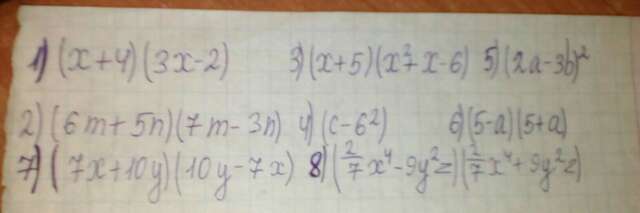 1) (x+4)(3x-2) 3) (x+5)(x²+x-6) 5) (2a-3b)²
2) (6m+5n)(7m-3n) 4) (c-6²) 6) (5-a)(5+a)
7) (7x+10y)(10y-7x) 8) (2/7x⁴-9y²z)(2/7x⁴+9y²z)